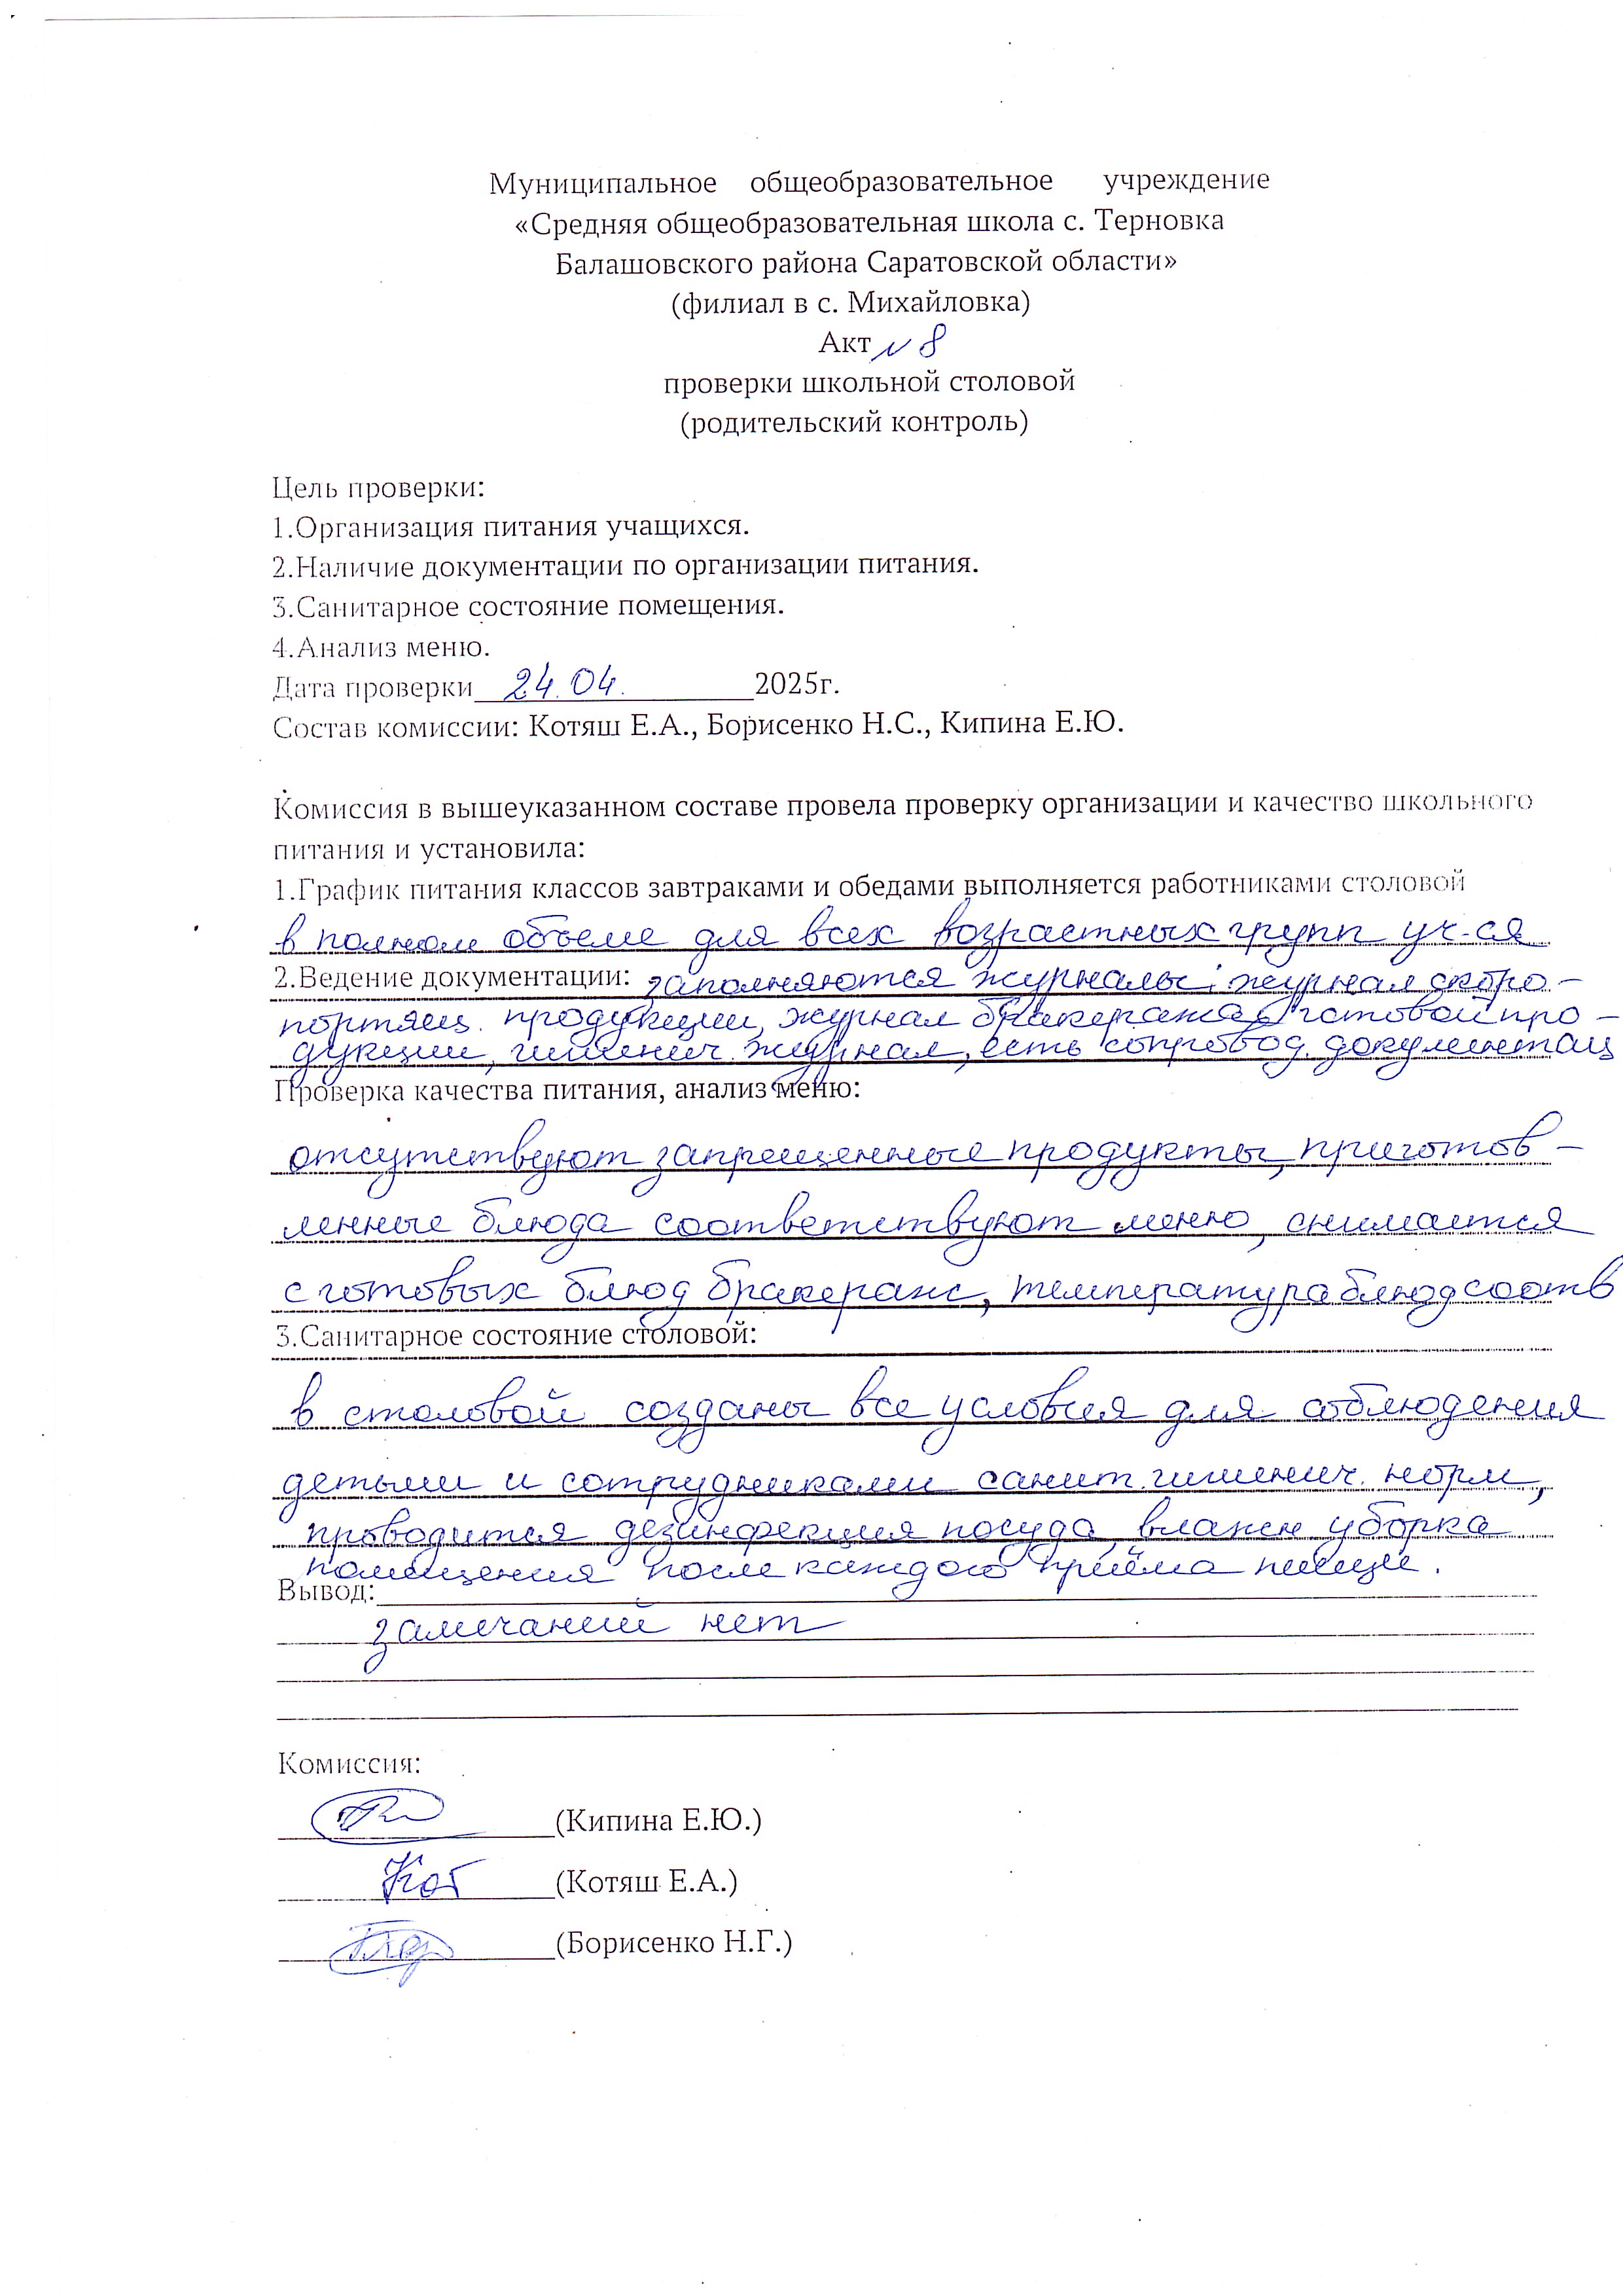 Муниципальное общеобразовательное учреждение
«Средняя общеобразовательная школа с. Терновка
Балашовского района Саратовской области»
(филиал в с. Михайловка)
Акт № 8
проверки школьной столовой
(родительский контроль)
Цель проверки:
1.Организация питания учащихся.
2.Наличие документации по организации питания.
3.Санитарное состояние помещения.
4.Анализ меню.
Дата проверки 24.04. 2025г.
Состав комиссии: Котяш Е.А., Борисенко Н.С., Кипина Е.Ю.
Комиссия в вышеуказанном составе провела проверку организации и качество школьного
питания и установила:
1.График питания классов завтраками и обедами выполняется работниками столовой
в полном объеме для всех возрастных групп уч-ся
2.Ведение документации: заполняются журналы: журнал скоро-
портящ. продукции, журнал бракеража готовой про-
дукции, гигиенич. журнал, есть сопровод. документац
Проверка качества питания, анализ меню:
отсутствуют запрещенные продукты, приготов-
ленные блюда соответствуют меню, снимается
с готовых блюд бракераж, температура блюд соотв
3.Санитарное состояние столовой:
в столовой созданы все условия для соблюдения
детьми и сотрудниками санит. гигиенич. норм,
проводится дезинфекция посуда, влажн уборка
помещения после каждого приёма пищи.
Вывод:
замечаний нет
Комиссия:
(Кипина Е.Ю.)
Кот (Котяш Е.А.)
(Борисенко Н.Г.)